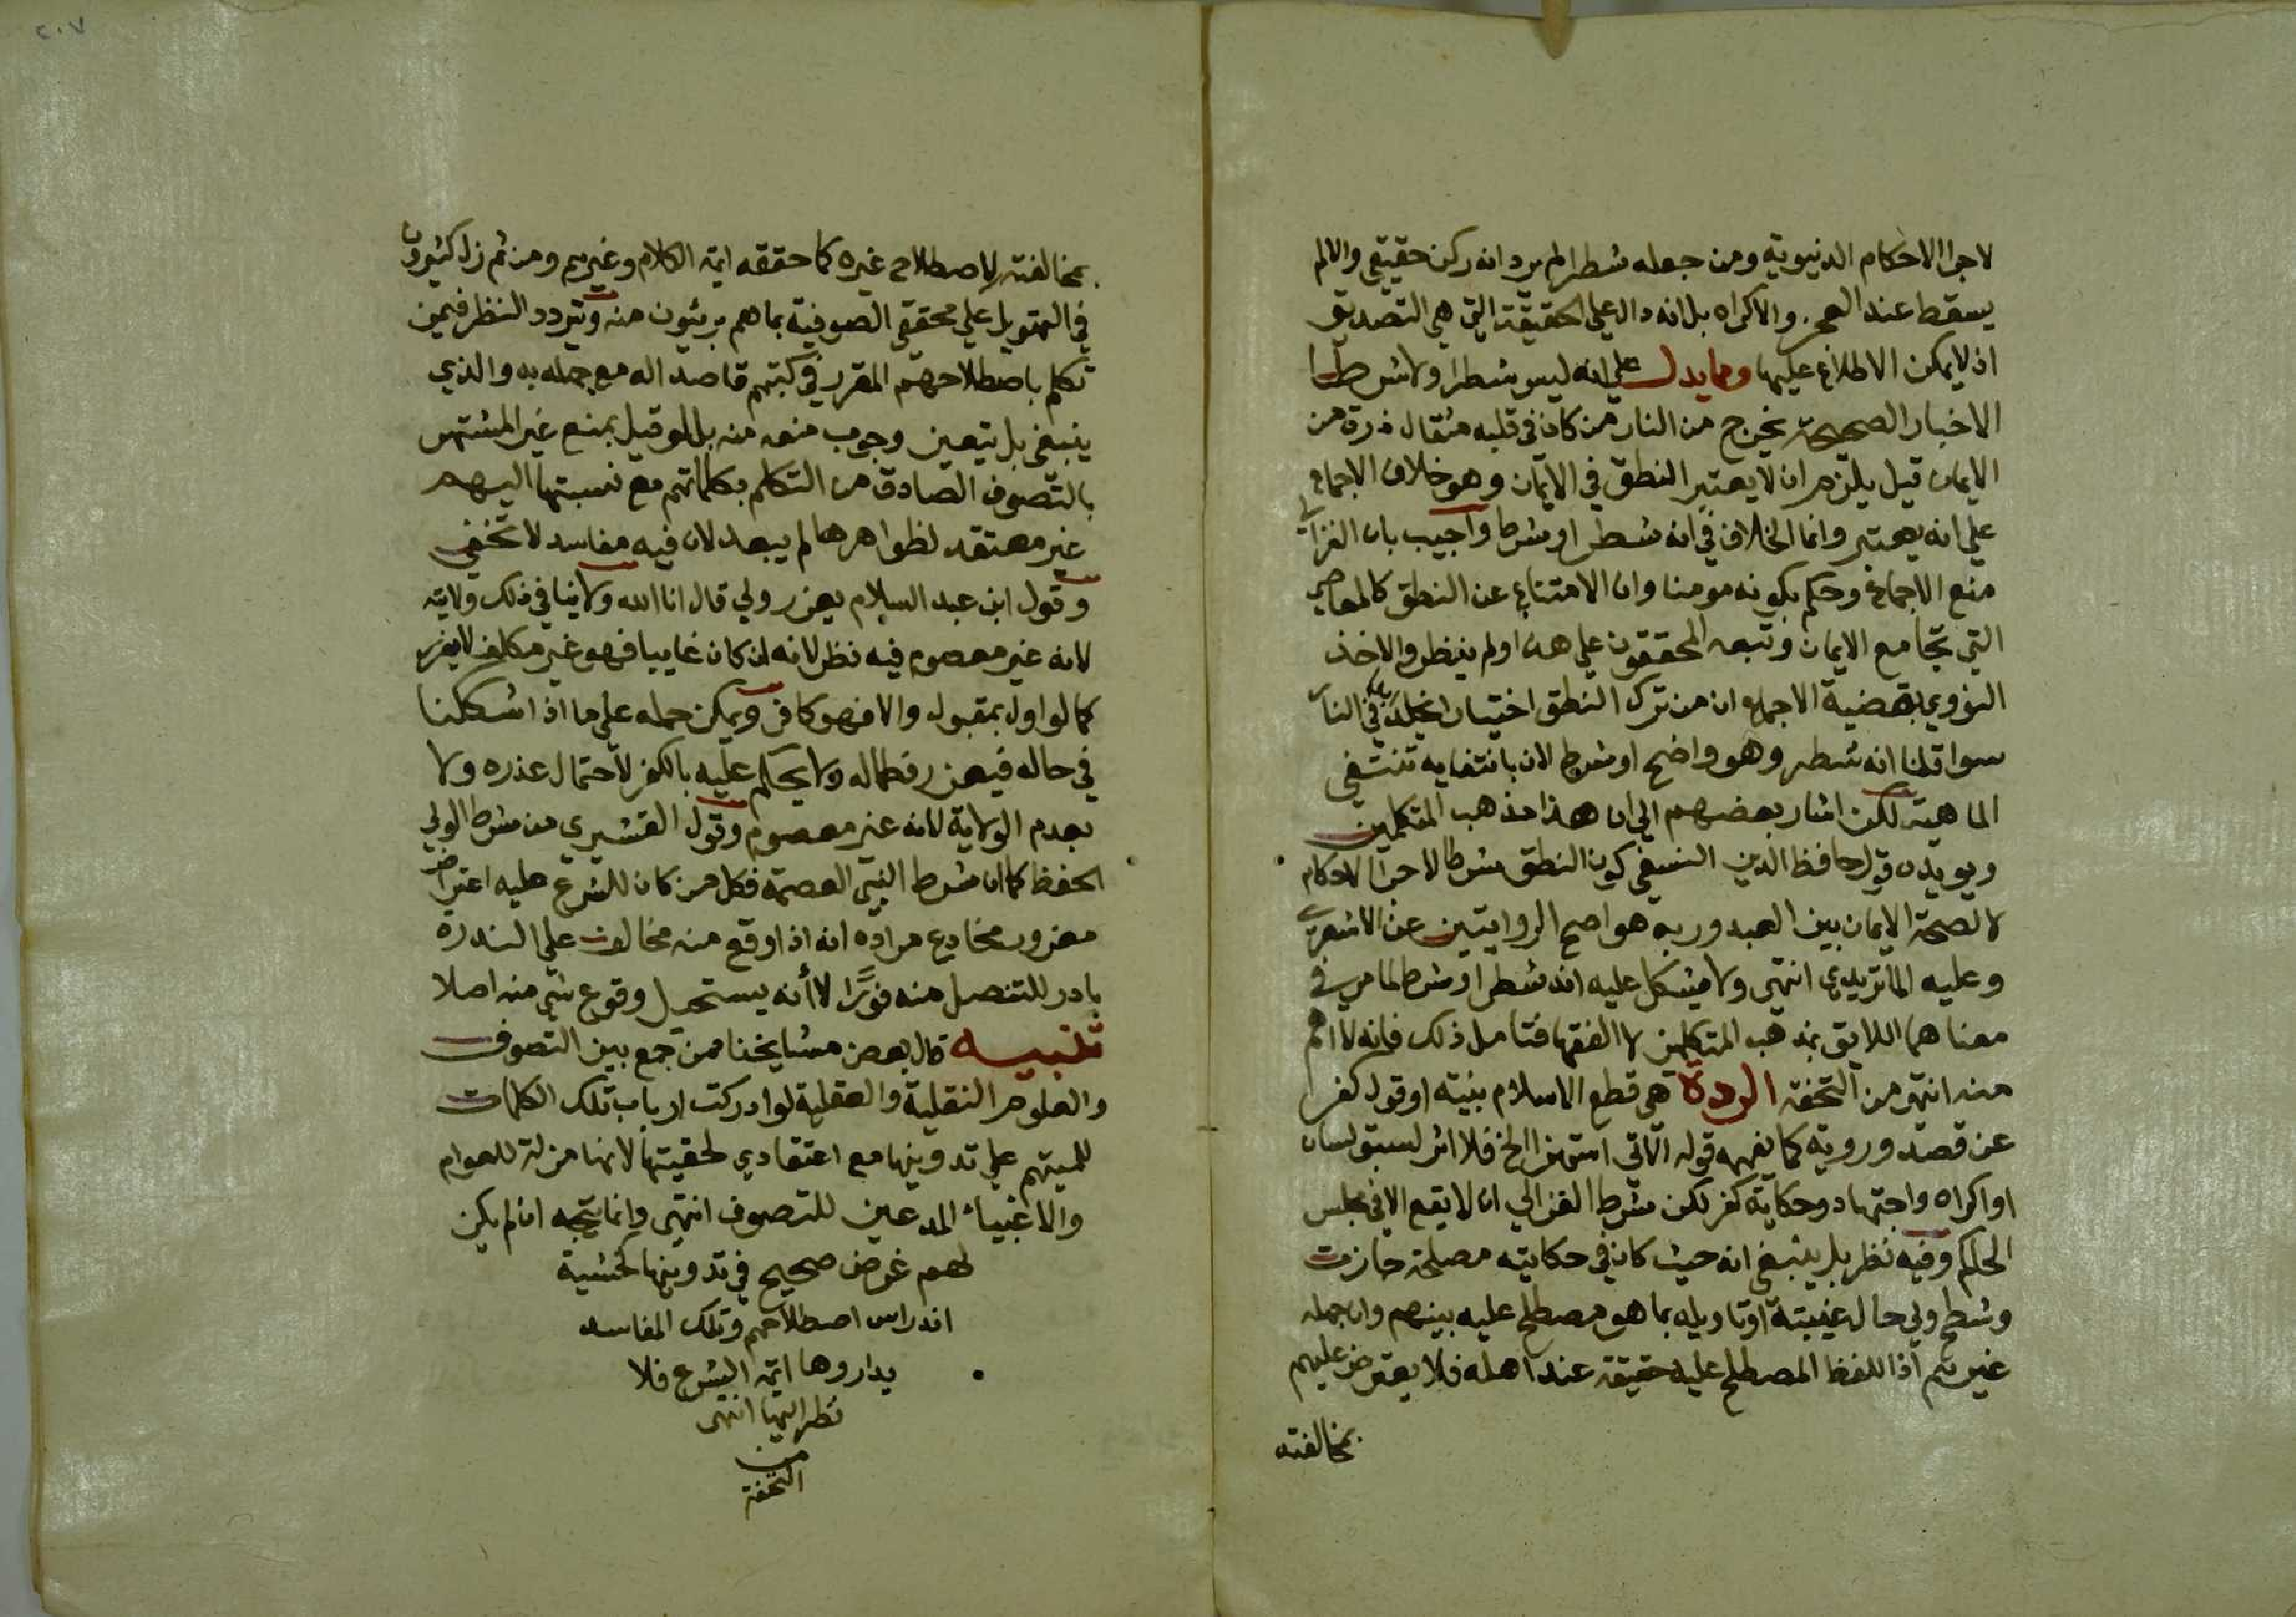 لاجرا الاحكام الدنيوية ومن جعله شطرا لم يرد انه ركن حقيقي والا لم
يسقط عند العجز والاكراه بل انه دال علي الحقيقة التي هي التصديق
اذ لا يمكن الاطلاع عليها ومما يدل علي انه ليس شطرا ولا شرطا
الاخبار الصحيحة يخرج من النار من كان في قلبه مثقال ذرة من
الايمان قيل يلزم ان لا يعتبر النطق في الايمان وهو خلاف الاجماع
علي انه يعتبر وانما الخلاف في انه شطر او شرط واجيب بان الغزالي
منع الاجماع وحكم بكونه مومنا وان الامتناع عن النطق كالمعاصي
التي تجامع الايمان وتبعه المحققون علي هذا ولم ينظروا لاخذ
النووي بقضية الاجماع ان من ترك النطق اختيارا يخلد في النار
سوا قلنا انه شطر وهو واضح او شرط لان بانتفايه تنتفي
الماهية لكن اشار بعضهم الي ان هذا مذهب المتكلمين
ويويده قول حافظ الدين النسفي كون النطق شرطا لاجرا الاحكام
لا لصحة الايمان بين العبد وربه هو اصح الروايتين عن الاشعري
وعليه الماتريدي انتهي ولا يشكل عليه انه شطر او شرط لما مر في
معناهما اللايق بمذهب المتكلمين لا الفقها فتامل ذلك فانه لا اهم
منه انتهي من التحفة الردة هي قطع الاسلام بنية او قول كفر
عن قصد وروية كما يفهمه قوله الاتي استهزا الخ فلا اثر لسبق لسان
او اكراه واجتهاد وحكاية كفر لكن شرط الغزالي ان لا يقع الا في مجلس
الحاكم وفيه نظر بل ينبغي انه حيث كان في حكايته مصلحة جازت
وشطح ولي حال غيبته او تاويله بما هو مصطلح عليه بينهم وان جهله
غيرهم اذ اللفظ المصطلح عليه حقيقة عند اهله فلا يعترض عليهم
بمخالفته
٢٠٧
بمخالفته لاصطلاح غيره كما حققه ايمة الكلام وغيرهم ومن ثم زل كثيرون
في التهويل علي محققي الصوفية بما هم بريئون منه وتردد النظر فيمن
تكلم باصطلاحهم المقرر في كتبهم قاصدا له مع جهله به والذي
ينبغي بل يتعين وجوب منعه منه بل لو قيل بمنع غير المشتهر
بالتصوف الصادق من التكلم بكلماتهم مع نسبتها اليهم
غير معتقد لظواهرها لم يبعد لان فيه مفاسد لا تخفي
وقول ابن عبد السلام يعزر ولي قال انا الله ولا ينافي ذلك ولايته
لانه غير معصوم فيه نظر لانه ان كان غايبا فهو غير مكلف لا يعزر
كما لو اول بمقبول والا فهو كافر ويمكن حمله علي ما اذا شككنا
في حاله فيعزر فطما له ولا يحكم عليه بالكفر لاحتمال عذره ولا
بعدم الولاية لانه غير معصوم وقول القشيري من شرط الولي
الحفظ كما ان شرط النبي العصمة فكل من كان للشرع عليه اعتراض
مغرور مخادع مراده انه اذا وقع منه مخالف علي الندرة
بادر للتنصل منه فورًا لا أنه يستحيل وقوع شي منه اصلا
تنبيه قال بعض مشايخنا ممن جمع بين التصوف
والعلوم النقلية والعقلية لو ادركت ارباب تلك الكلمات
للمتهم علي تدوينها مع اعتقادي لحقيتها لانها مزلة للعوام
والاغبياء المدعين للتصوف انتهي وانما يتجه ان لم يكن
لهم غرض صحيح في تدوينها كخشية
اندراس اصطلاحهم وتلك المفاسد
يداروها ايمة الشرع فلا
نظر اليها انتهى
من
التحفة